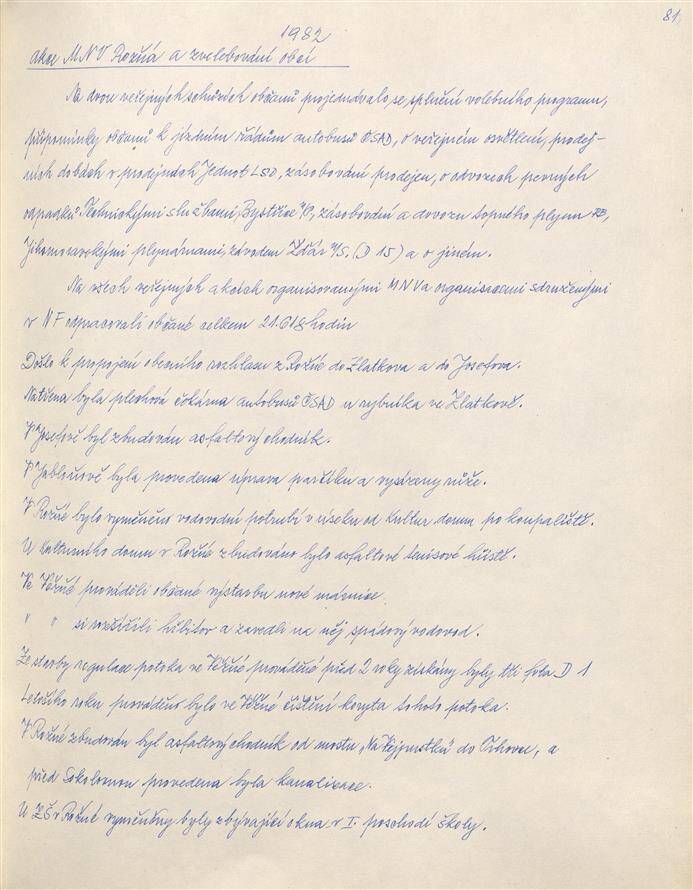 81.
1982
akce MNV Rožná a zvelebování obcí
Na dvou veřejných schůzích občanů projednávalo se splnění volebního programu,
připomínky občanů k jízdním řádům autobusů ČSAD, o veřejném osvětlení, prodej-
ních dobách v prodejnách Jednot LSD, zásobování prodejen, o odvozech pevných
odpadků Technickými službami, Bystřice n/P, zásobování a dovozu topného plynu PB,
Jihomoravskými plynárnami, závodem Žďár n/S. (D 15) a o jiném.
Na všech veřejných akcích organisovanými MNV a organisacemi sdruženými
v NF odpracovali občané celkem 21.618 hodin
Došlo k propojení obecního rozhlasu z Rožné do Zlatkova a do Josefova.
Natřena byla plechová čekárna autobusů ČSAD u rybníka ve Zlatkově.
V Josefově byl zbudován asfaltový chodník.
V Jabloňově byla provedena úprava parčíku a vysázeny růže.
V Rožné bylo vyměněno vodovodní potrubí v úseku od Kultur. domu po koupaliště.
U Kulturního domu v Rožné zbudováno bylo asfaltové tenisové hřiště.
Ve Věžné prováděli občané výstavbu nové márnice.
" " si rozšířili hřbitov a zavedli na něj spádový vodovod.
Ze stavby regulace potoka ve Věžné prováděné před 2 roky získány byly tři fota D 1
Letošího roku prováděno bylo ve Věžné čištění koryta tohoto potoka.
V Rožné zbudován byl asfaltový chodník od mostu „Na Vejpustku" do Cihovec, a
před Sokolovnou provedena byla kanalizace.
U ZŠ v Rožné vyměněny byly zbývající okna v I. poschodí školy.